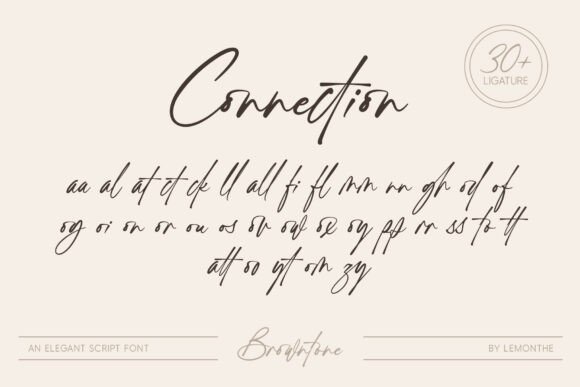 30+
LIGATURE
Connection
aa al at ct ck ll all fi fl mm nn gh od of
og oi on or ou os ov ow ox oy pp rr ss to tt
att oo yt om zy
AN ELEGANT SCRIPT FONT
Browntone
BY LEMONTHE